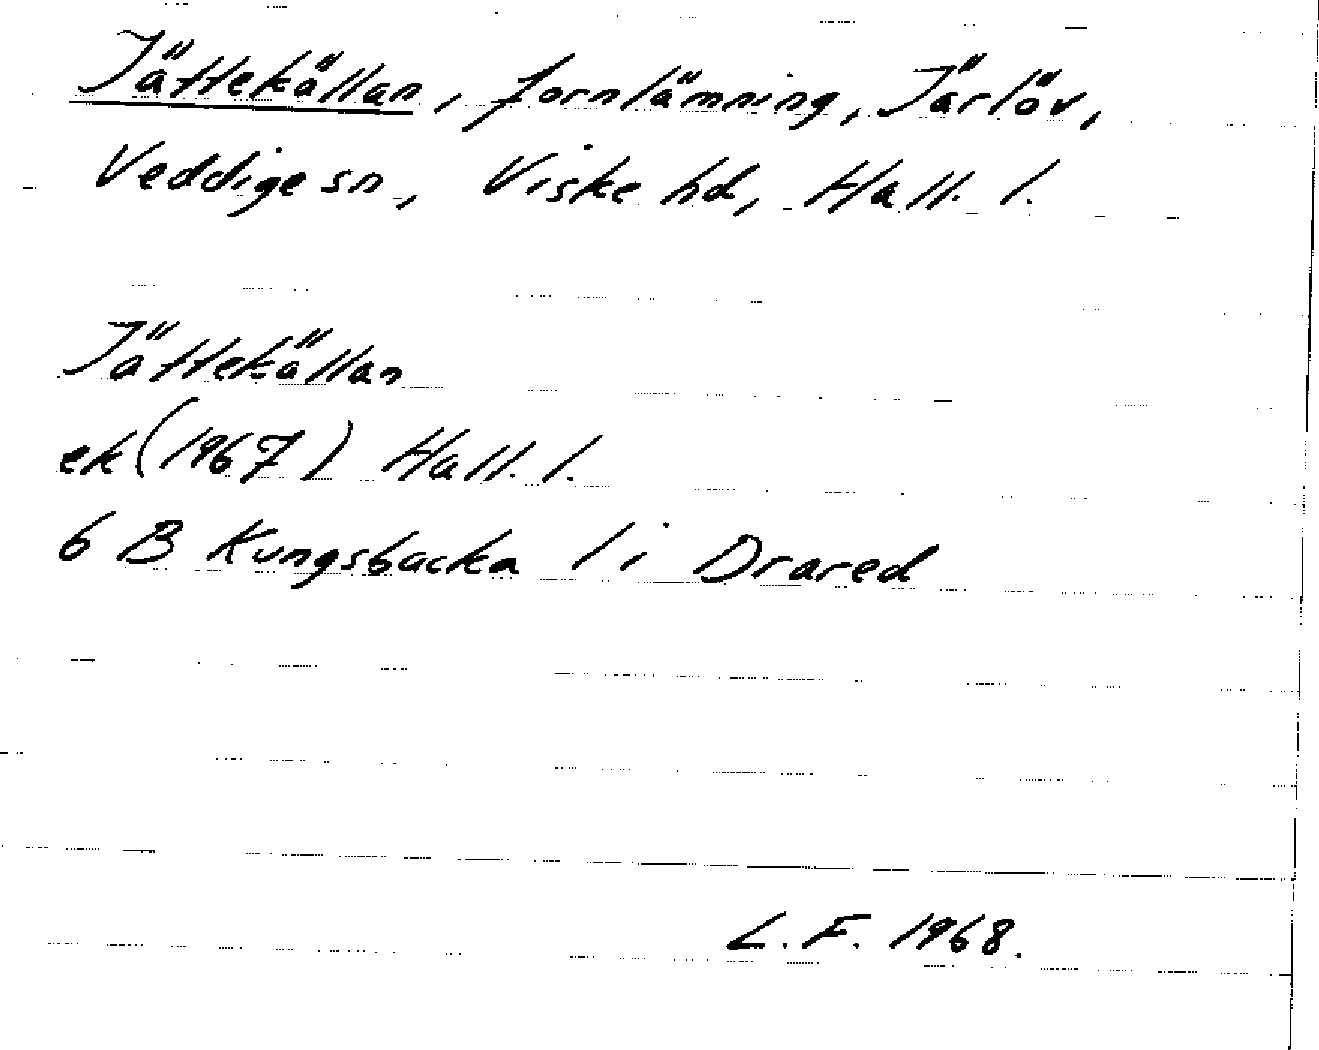 Jättekällan, fornlämning, Järlöv,
Veddige sn, Viske hd, Hall. l.
Jättekällan
ek (1967) Hall. l.
6 B Kungsbacka 1 i Drared
L. F. 1968.